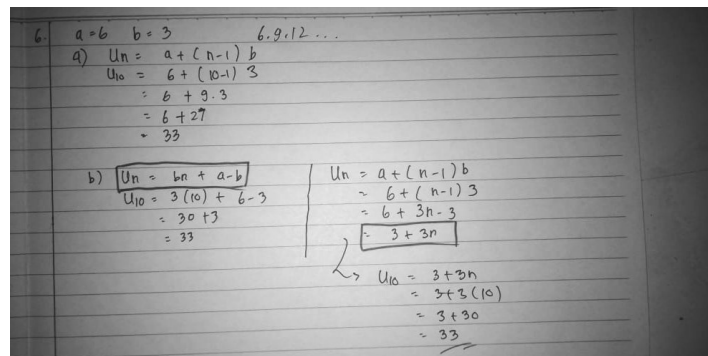 6. a = 6 b = 3 6.9.12...
a) Un = a + (n-1) b
U10 = 6 + (10-1) 3
= 6 + 9.3
= 6 + 27
= 33
b) Un = bn + a-b
U10 = 3(10) + 6-3
= 30 + 3
= 33
Un = a + (n-1) b
= 6 + (n-1) 3
= 6 + 3n - 3
= 3 + 3n
U10 = 3 + 3n
= 3+3(10)
= 3 + 30
= 33